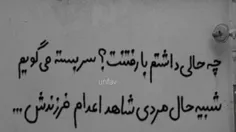 چه حالی داشتم با رفتنت؟ سربسته می‌گویم
شبیه حال مردی شاهد اعدام فرزندش ...